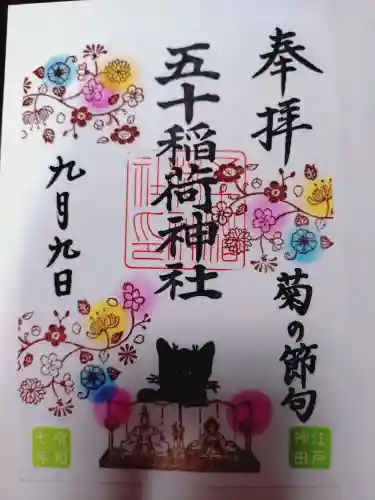 奉拝
菊の節句
五十稲荷神社
九月九日
江戸
神田
令和
七年